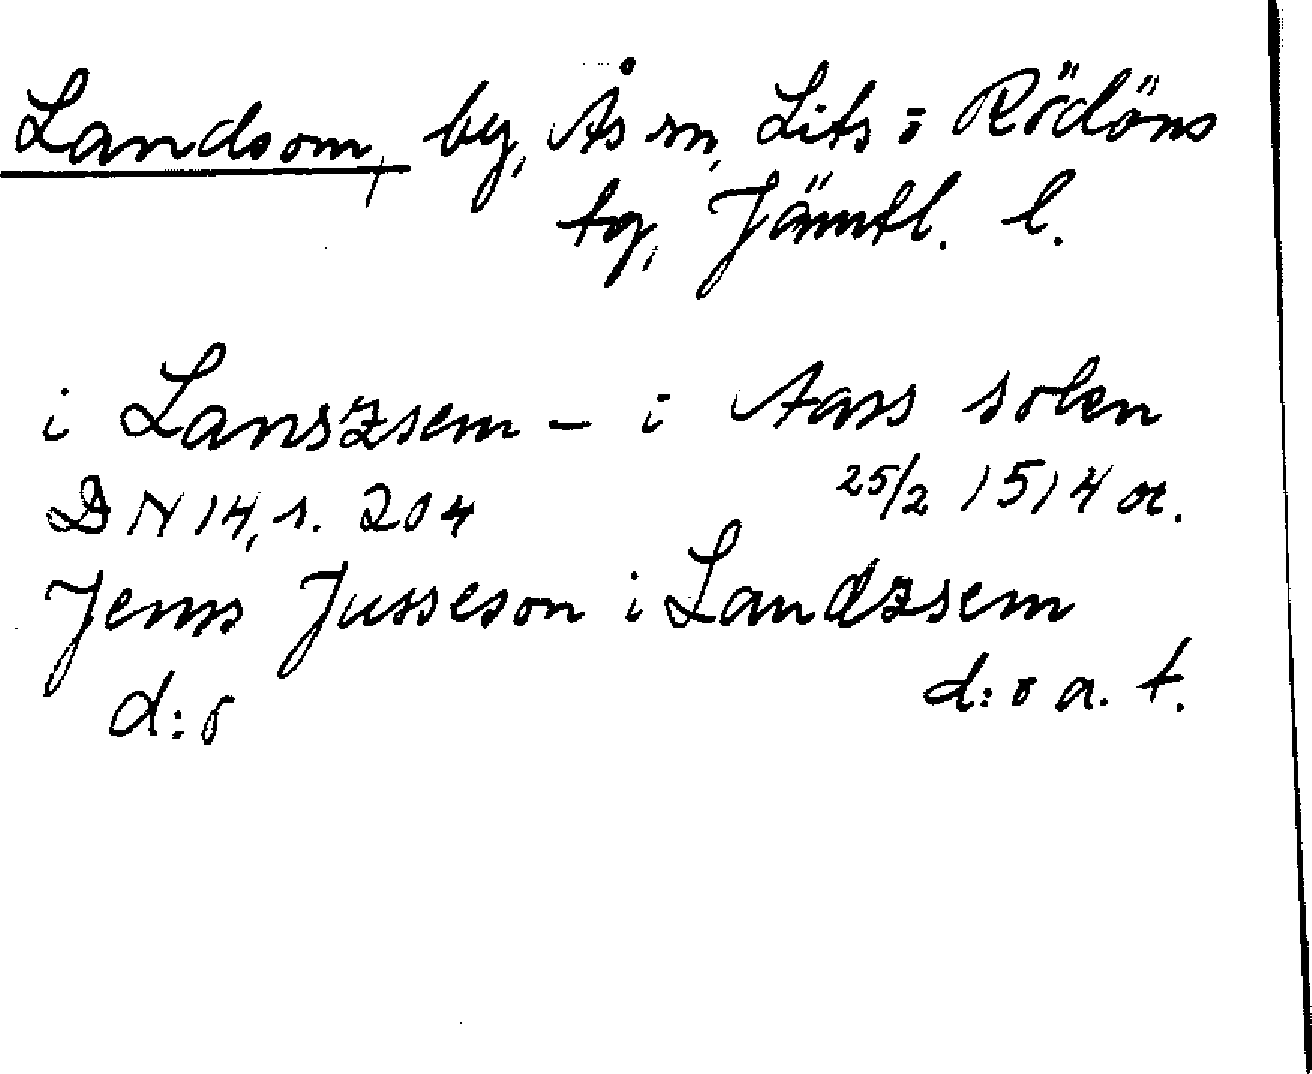 Landsom, by, Ås sn, Lits o Rödöns
tg, Jämtl. l.
i Lanszsem - i Aass sokn
DN 14, s. 204 25/2 1514 or.
Jens Jusseson i Landzsem
d:o d:o a. st.